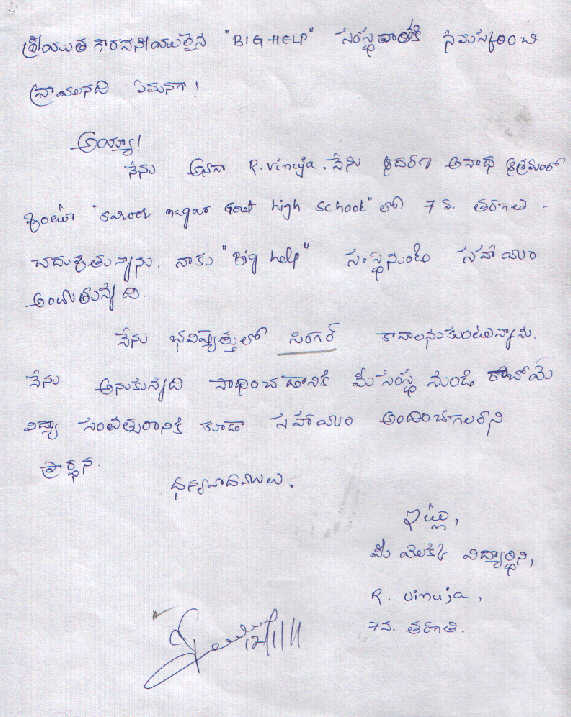 శ్రీయుత గౌరవనీయులైన "BIG-HELP" సంస్థవారికి నమస్కరించి
వ్రాయునది ఏమనగా!
అయ్యా!
నేను అనగా R.vinuja. నేను ఆదరణ అనాధ ఆశ్రమంలో
ఉంటూ nagar Govt high school" లో 7 వ. తరగతి
చదువుతున్నాను. నాకు "Big help" సంస్థనుండి సహాయం
అందుతున్నది.
నేను భవిష్యత్తులో సింగర్ కావాలనుకుంటున్నాను.
నేను అనుకున్నది సాధించడానికి మీ సంస్థ నుండి రాబోయే
విద్యా సంవత్సరానికి కూడా సహాయం అందించగలరని
ప్రార్థన.
ధన్యవాదములు.
ఇట్లు,
మీ యొక్క విద్యార్థిని,
R. vinuja,
7వ. తరగతి.